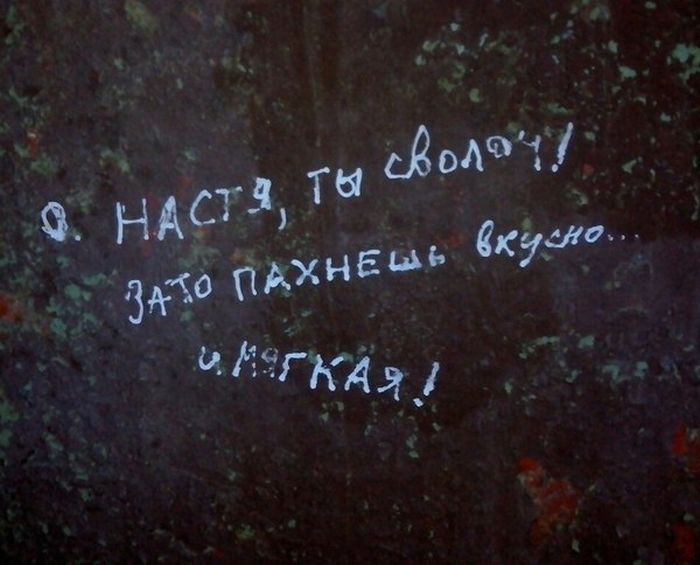 О. НАСТЯ, ты сволоч!
ЗАТО ПАХНЕШЬ вкусно...
и мягкая!